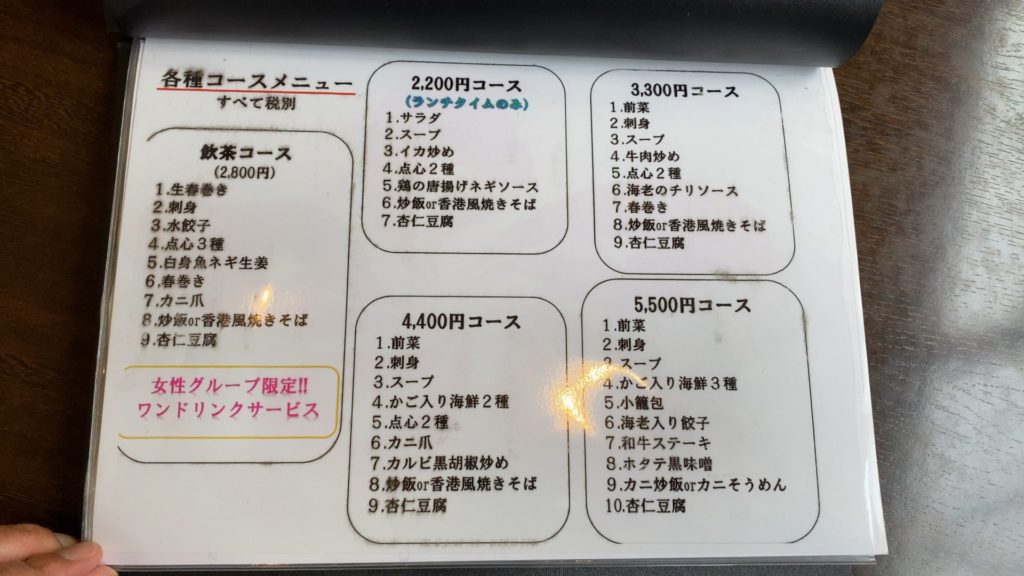 各種コースメニュー
すべて税別
飲茶コース
(2,800円)
1.生春巻き
2.刺身
3.水餃子
4.点心3種
5.白身魚ネギ生姜
6.春巻き
7.カニ爪
8.炒飯or香港風焼きそば
9.杏仁豆腐
女性グループ限定!!
ワンドリンクサービス
2,200円コース
(ランチタイムのみ)
1.サラダ
2.スープ
3.イカ炒め
4.点心2種
5.鶏の唐揚げネギソース
6.炒飯or香港風焼きそば
7.杏仁豆腐
3,300円コース
1.前菜
2.刺身
3.スープ
4.牛肉炒め
5.点心2種
6.海老のチリソース
7.春巻き
8.炒飯or香港風焼きそば
9.杏仁豆腐
4,400円コース
1.前菜
2.刺身
3.スープ
4.かご入り海鮮2種
5.点心2種
6.カニ爪
7.カルビ黒胡椒炒め
8.炒飯or香港風焼きそば
9.杏仁豆腐
5,500円コース
1.前菜
2.刺身
3.スープ
4.かご入り海鮮3種
5.小籠包
6.海老入り餃子
7.和牛ステーキ
8.ホタテ黒味噌
9.カニ炒飯orカニそうめん
10.杏仁豆腐